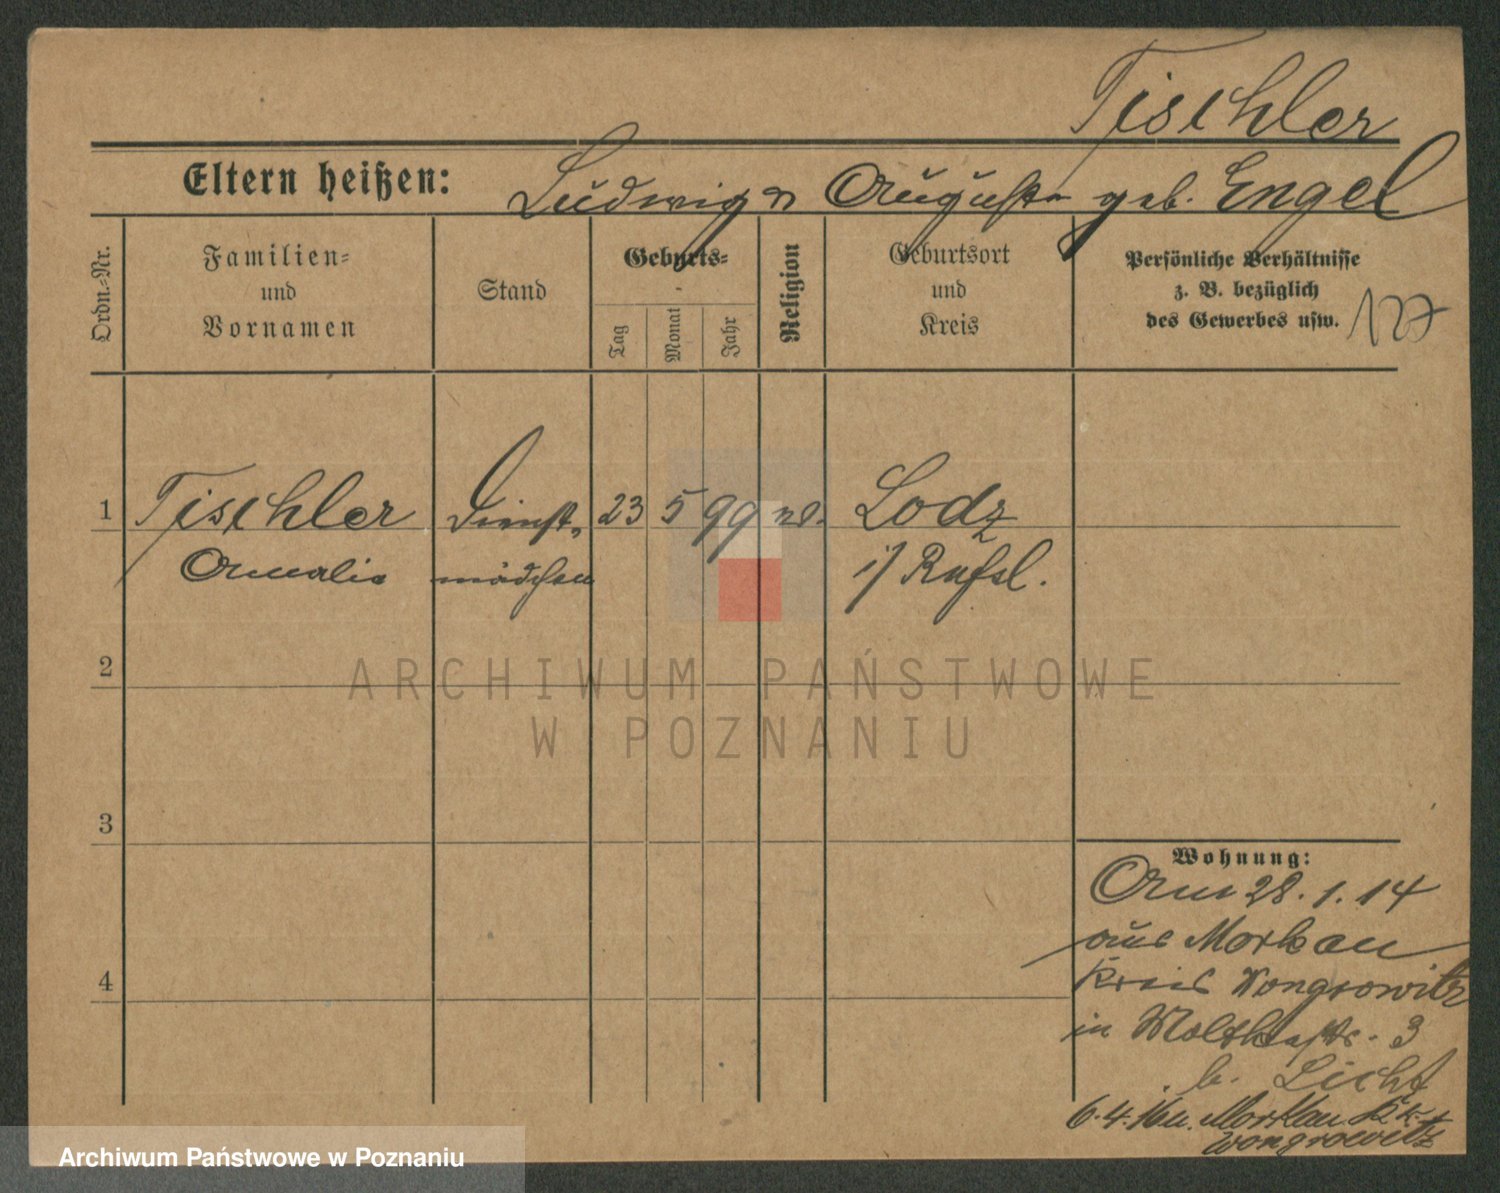 Tischler
Eltern heißen: Ludwig u Auguste geb. Engel
Ordn.-Nr.
Familien-
und
Vornamen
Stand
Geburts-
Tag
Monat
Jahr
Religion
Geburtsort
und
Kreis
Persönliche Verhältnisse
z. B. bezüglich
des Gewerbes usw.
127
1 Tischler Dienst- 23 5 99 Lodz
Amalie mädchen i/ Rußl.
2
3
4
Wohnung:
Am 28. 1. 14
aus Morkau
Kreis Wongrowitz
in Moltkestr. 3
b. Licht
6. 4. 16 n. Morkau Kr.
Wongrowitz
ARCHIWUM PAŃSTWOWE
W POZNANIU
Archiwum Państwowe w Poznaniu